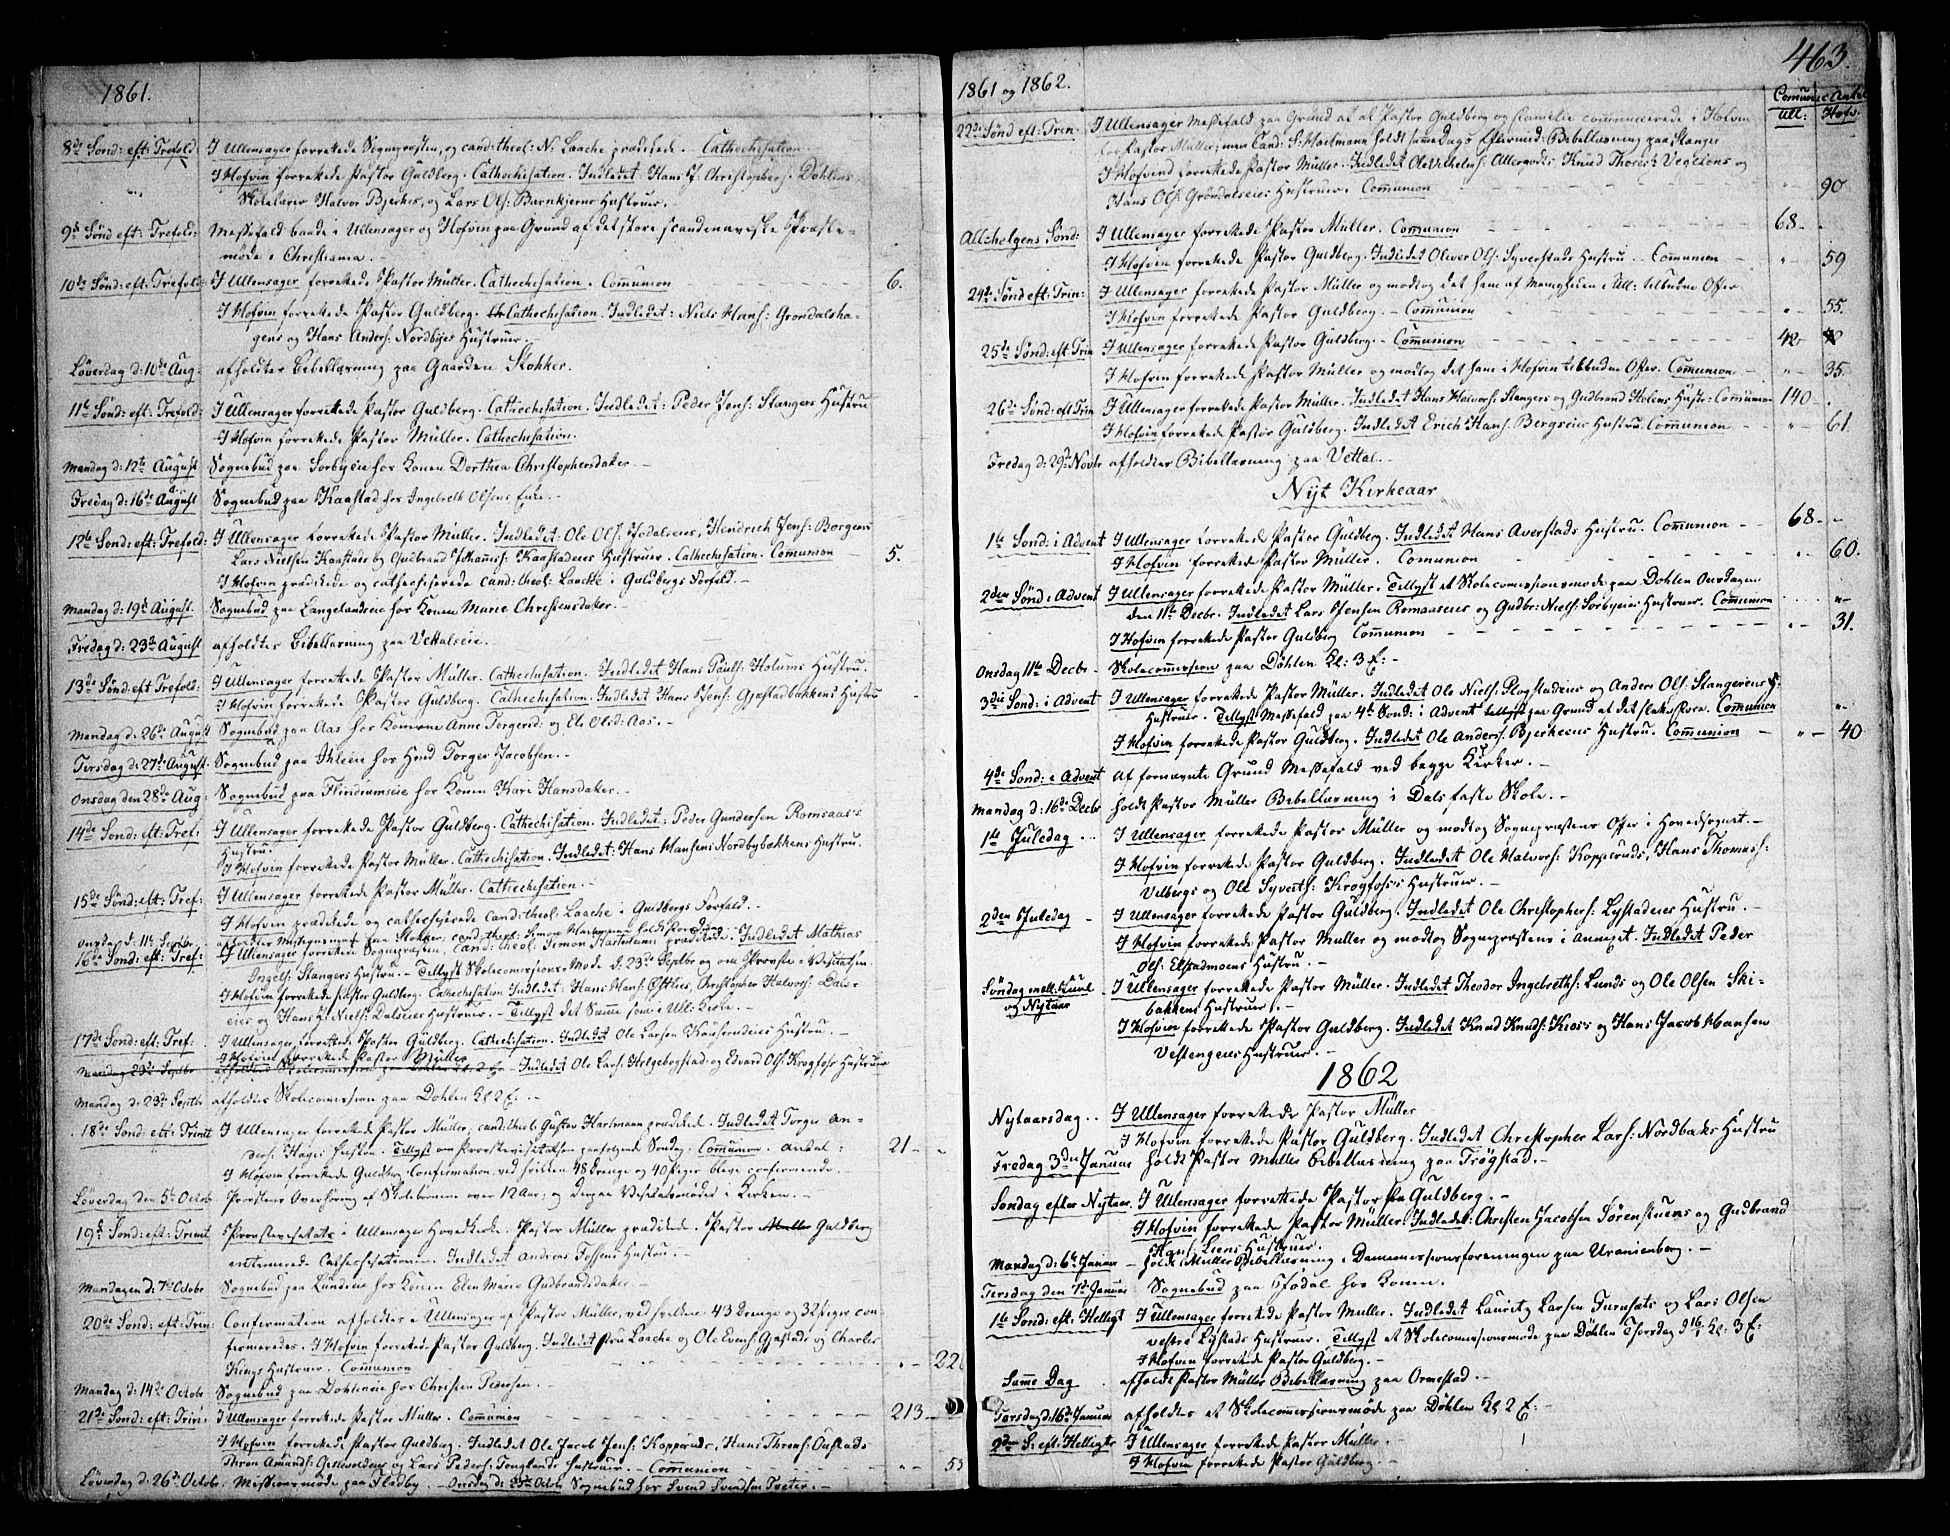 1861.
8de Sønd: eft: Trefold: I Ullensager forrettede Sognepræsten, og cand: theol: N. Laache prædikede. Cathechisation
I Hofvin forrettede Pastor Guldberg. Cathechisation. Indledet Hans J. Christophers: Døhlens
Skolelærer Halvor Bjerkes, og Lars Ols: Barnkjerns Hustruer. -
9de Sønd eft: Trefold: Messefald baade i Ullensager og Hofvin paa Grund af det store scandenaviske Præste-
møde i Christiania. -
10de Sønd: eft: Trefold: I Ullensager forrettede Pastor Müller. Cathechisation. Communion 6.
I Hofvin forrettede Pastor Guldberg. Cathechisation. Indledet: Niels Hans: Grøndalsha-
gens og Hans Anders: Nordbyes Hustruer. -
Løverdag d: 10de Aug. afholdtes Bibellæsning paa Gaarden Stokker.
11te Sønd: eft: Trefold: I Ullensager forrettede Pastor Guldberg. Cathechisation. Indledet: Peder Jens: Stangers Hustru
I Hofvin forrettede Pastor Müller. Cathechisation.
Mandag d: 12te August Sognebud paa Sørbyeie for Konen Dorthea Christophersdatter. -
Fredag d: 16de August Sognebud paa Kaastad hos Ingebreth Olsens Enke. -
12te Sønd: eft: Trefold: I Ullensager forrettede Pastor Müller. Indledet: Ole Ols: Jodalseies, Hendrich Jens: Borgens
Lars Nielsen Kaastads og Gulbrand Johannis: Kaastadeies Hustruer. Cathechisation. Communion 5.
I Hofvin prædikede og cathechiserede cand: theol: Laache i Guldbergs Forfald. -
Mandag d: 19de August. Sognebud paa Langelandseie for Konen Marie Christensdatter. -
Fredag d: 23de August afholdtes Bibellæsning paa Vettalseie.
13de Sønd: eft Trefold: I Ullensager forrettede Pastor Müller. Cathechisation. Indledet Hans Pauls: Holums Hustru.
I Hofvin forrettede Pastor Guldberg. Cathechisation. Indledet Hans Jens: Gjestadbakkens Hustru
Mandag d: 26de August Sognebud paa Aas for Konerne Anne Torgersd: og Eli Olsd: Aas. -
Tirsdag d: 27de August. Sognebud paa Ihleeie hos Hmd Torger Jacobsen. -
Onsdag den 28de Aug: Sognebud paa Flindrumeie for Konen Kari Hansdatter. -
14de Sønd: eft: Tref: I Ullensager forrettede Pastor Guldberg. Cathechisation. Indledet: Peder Gundersen Romsaas's
Hustru.
I Hofvin forrettede Pastor Müller. Cathechisation. Indledet: Hans Hansens Nordbybakkens Hustru.
15de Sønd: eft: Tref: I Ullensager forrettede Pastor Müller. Cathechisation. -
I Hofvin prædikede og cathechiserede cand: theol: Laache i Guldbergs Forfald. -
Onsdag d. 11te Septbr afholdtes Missionsmøde paa Stokker, cand: theol: Simon Hartmann holdt Foredrag
16de Sønd: eft: Tref: I Ullensager forrettede Sognepræsten, cand: theol: Simon Hartmann prædikede. Indledet Mathias
Ingels: Stangers Hustru. - Tillyst Skolecommissions-Møde d: 23de Septbr og om Provste-Visitatsen.
I Hofvin forrettede Pastor Guldberg. Cathechisation Indledet: Hans Hans: Østlies, Christopher Halvors: Dals-
eies og Hans H: Niels: Dalseies Hustruer. - Tillyst det Samme som i Ull: Kirke. -
17de Sønd: eft: Tref: I Ullensager forrettede Pastor Guldberg. Cathechisation. Indledet Ole Larsen Kauserudeies Hustru. -
I Hofvin forrettede Pastor Müller
Mandag 23de Septbr Indledet Ole Lars: Holgebogstad og Edvard Ols: Krogfoss Hustruer
Mandag d: 23de Septbr afholdtes Skolecommission paa Døhlen Kl 2 E. -
18de Sønd: eft: Trinit I Ullensager forrettede Pastor Müller, cand: theol: Gustav Hartmann prædikede. Indledet Torger An-
ders: Hages Hustru. Tillyst om Provstevisitatsen paafølgende Søndag. Communion. Antal: 21
I Hofvin forrettede Guldberg Confirmation, ved hvilken 48 Drenge og 40 Piger bleve confirmerede.
Løverdag den 5te Octob Provstens Overhøring af Skolebørnene over 12 Aar; og derpaa Visitatsmødet i Kirken.
19de Sønd: eft: Trinit Provstevisitats i Ullensager Hovedkirke. Pastor Müller prædikede. Pastor Müller Guldberg
intonerede Cathechisationen. Indledet Andreas Fossens Hustru. -
Mandagen d. 7de Octobr Sognebud paa Lundeie for Konen Elen Marie Gudbrandsdatter. -
20de Sønd: eft: Trin: Confirmation afholdtes i Ullensager af Pastor Müller, ved hvilken 43 Drenge og 32 Piger con-
firmeredes. I Hofvin forrettede Pastor Guldberg. Indledet Fru Laache og Ole Evens: Gjestads og Charles
Kings Hustruer. Communion 22
Mandag d: 14de Octobr Sognebud paa Dohleneie hos Christen Pedersen.
21de Sønd: eft: Trin: I Ullensager forrettede Pastor Müller. Communion 213
I Hofvin forrettede Pastor Guldberg. Indledet Ole Jacob Jens: Kopperuds, Hans Throns: Østads
Thron Amunds: og Lars Peders: Tonglands Hustruer. - Communion 55
Løverdag d: 26de Octobr. Missionsmøde paa Fladby. - Onsdag d: Octob Sognebud hos Svend Svendsen Træter. -
463.
1861 og 1862.
Comunic: Antal
Ull: Hofv:
22de Sønd eft: Trin: I Ullensager Messefald paa Grund af at Pastor Guldberg og Familie communicerede i Hofvin
hos Pastor Müller; men Cand: S. Hartmann holdt samme Dags Eftermid: Bibellæsning paa Stanger
I Hofvind forrettede Pastor Müller. Indledet Ole Vilhelms: Allergodts, Knud Thores: Vegstens og
Hans Ols: Grøndalseies Hustruer. Communion 90
Allehelgens Sønd: I Ullensager forrettede Pastor Müller. Communion 68
I Hofvin forrettede Pastor Guldberg. Indledet Oliver Ols: Syverstads Hustru. Communion 59
24de Sønd eft: Trin: I Ullensager forrettede Pastor Müller og modtog det ham af Menigheden i Ull: tilbudne Offer.
I Hofvin forrettede Pastor Guldberg. - Communion 55.
25de Sønd: eft: Trin I Ullensager forrettede Pastor Guldberg. - Communion 42
I Hofvin forrettede Pastor Müller og modtog det ham i Hofvin tilbudne Offer. Communion 35.
26de Sønd: eft Trin I Ullensager forrettede Pastor Müller. Indledet Hans Halvors: Stangers og Gudbrand Holens Hustr: Communion 140
I Hofvin forrettede Pastor Guldberg. Indledet Erich Hans: Bergseies Hustru. Communion 61.
Fredag d: 29de Novbr afholdtes Bibellæsning paa Vettal. -
Nyt Kirkeaar
1te Sønd: i Advent I Ullensager forrettede Pastor Guldberg. Indledet Hans Averstads Hustru. Communion 68
I Hofvin forrettede Pastor Müller. Communion 60.
2den Sønd: i Advent I Ullensager forrettede Pastor Müller. Tillyst et Skolecommissionsmøde paa Dohlen Onsdagen
den 11te Decbr. Indledet Lars Jensen Romsaaseies og Gudbr: Niels: Sørbyeies Hustruer. Communion
I Hofvin forrettede Pastor Guldberg Communion 31.
Onsdag 11te Decbr. Skolecommission paa Døhlen Kl: 3 E: -
3die Sønd: i Advent I Ullensager forrettede Pastor Müller. Indledet Ole Niels: Slogstadeies og Anders Ols: Stangerens
Hustruer. Tillyst Messefald paa 4de Sønd: i Advent tillyst paa Grund af det slette Føre. Communion
I Hofvin forrettede Pastor Guldberg. Indledet Ole Anders: Bjerkeeies Hustru. Communion 40
4de Sønd: i Advent Af fornævnte Grund Messefald ved begge Kirker. -
Mandag d: 16de Decbr holdt Pastor Müller Bibellæsning i Dals faste Skole. -
1te Juledag I Ullensager forrettede Pastor Müller og modtog Sognepræstens Offer i Hovedsognet. -
I Hofvin forrettede Pastor Guldberg. Indledet Ole Halvors: Kopperuds, Hans Thomas:
Velbergs og Ole Syverts: Krogfoss's Hustruer. -
2den Juledag I Ullensager forrettede Pastor Guldberg. Indledet Ole Christophers: Lystadeies Hustru. -
I Hofvin forrettede Pastor Müller og modtog Sognepræstens i Annexet. Indledet Peder
Ols: Elstadmoens Hustru. -
Søndag mell: Juul I Ullensager forrettede Pastor Müller. Indledet Theodor Ingebreths: Lunds og Ole Olsen Ski-
og Nytaar bakkens Hustruer. -
I Hofvin forrettede Pastor Guldberg. Indledet Knud Knuds: Kioss og Hans Jacob Hansen
Vestengeies Hustruer. -
1862
Nytaarsdag.. I Ullensager forrettede Pastor Müller
I Hofvin forrettede Pastor Guldberg. Indledet Christopher Lars: Nordbaks Hustru
Fredag 3die Januar holdt Pastor Müller Bibellæsning paa Trøgstad. -
Søndag efter Nytaar. I Ullensager forrettede Pastor Guldberg. -
I Hofvin forrettede Pastor Müller. Indledet: Christen Jacobsen Sørenstuens og Gudbrand
Hans: Liens Hustruer.
Mandag d: 6te Januar holdt Müller Bibellæsning i Damemissionsforeningen paa Uranienborg. -
Tirsdag den 7de Januar Sognebud paa Jødal hos Konen.
1te Sønd: eft: Helligt I Ullensager forrettede Pastor Müller. Indledet Lauritz Larsen Furusæts og Lars Olsen
vestre Lystads Hustruer. Tillyst et Skolecommissionsmøde paa Døhlen Thorsdag d 16 Kl: 3 E:
I Hofvin forrettede Pastor Guldberg. -
Samme Dag afholdt Pastor Müller Bibellæsning paa Ormestad. -
Torsdag d: 16de Januar afholdtes et Skolecommissionsmøde paa Døhlen Kl 2 E: -
2den S: eft: Helligtr I Ullensager forrettede Pastor Müller. -
I Hofvin forrettede Pastor Guldberg. -